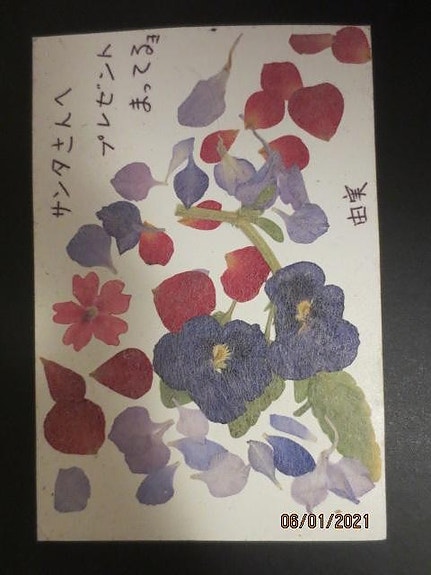 サンタさんへ
プレゼント
まってるョ
由実
06/01/2021